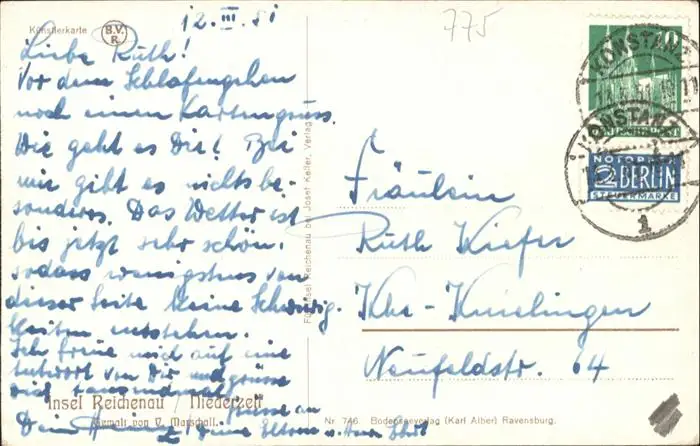 12. III. 51
775
Künstlerkarte
B.V.
R.
Liebe Ruth!
Vor dem Schlafengehen
noch einen Kartengruss.
Wie geht es Dir! Bei
mir gibt es nichts be-
sonderes. Das Wetter ist
bis jetzt sehr schön,
sodass wenigstens von
dieser Seite keine Schwierig-
keiten entstehen.
Ich freue mich auf eine
Antwort von Dir und grüsse
Dich tausendmal
Grüsse an
Dein Heinz Deine Eltern
Insel Reichenau / Niederzell
Gemalt von V. Marschall.
Für Insel Reichenau bei Josef Keller, Verlag
10
KONSTANZ
DEUTSCHE POST
KONSTANZ
NOTOPFER
2 BERLIN
STEUERMARKE
1
Fräulein
Ruth Kiefer
Khe-Knielingen
Neufeldstr. 64
Nr. 746. Bodenseeverlag (Karl Alber) Ravensburg.